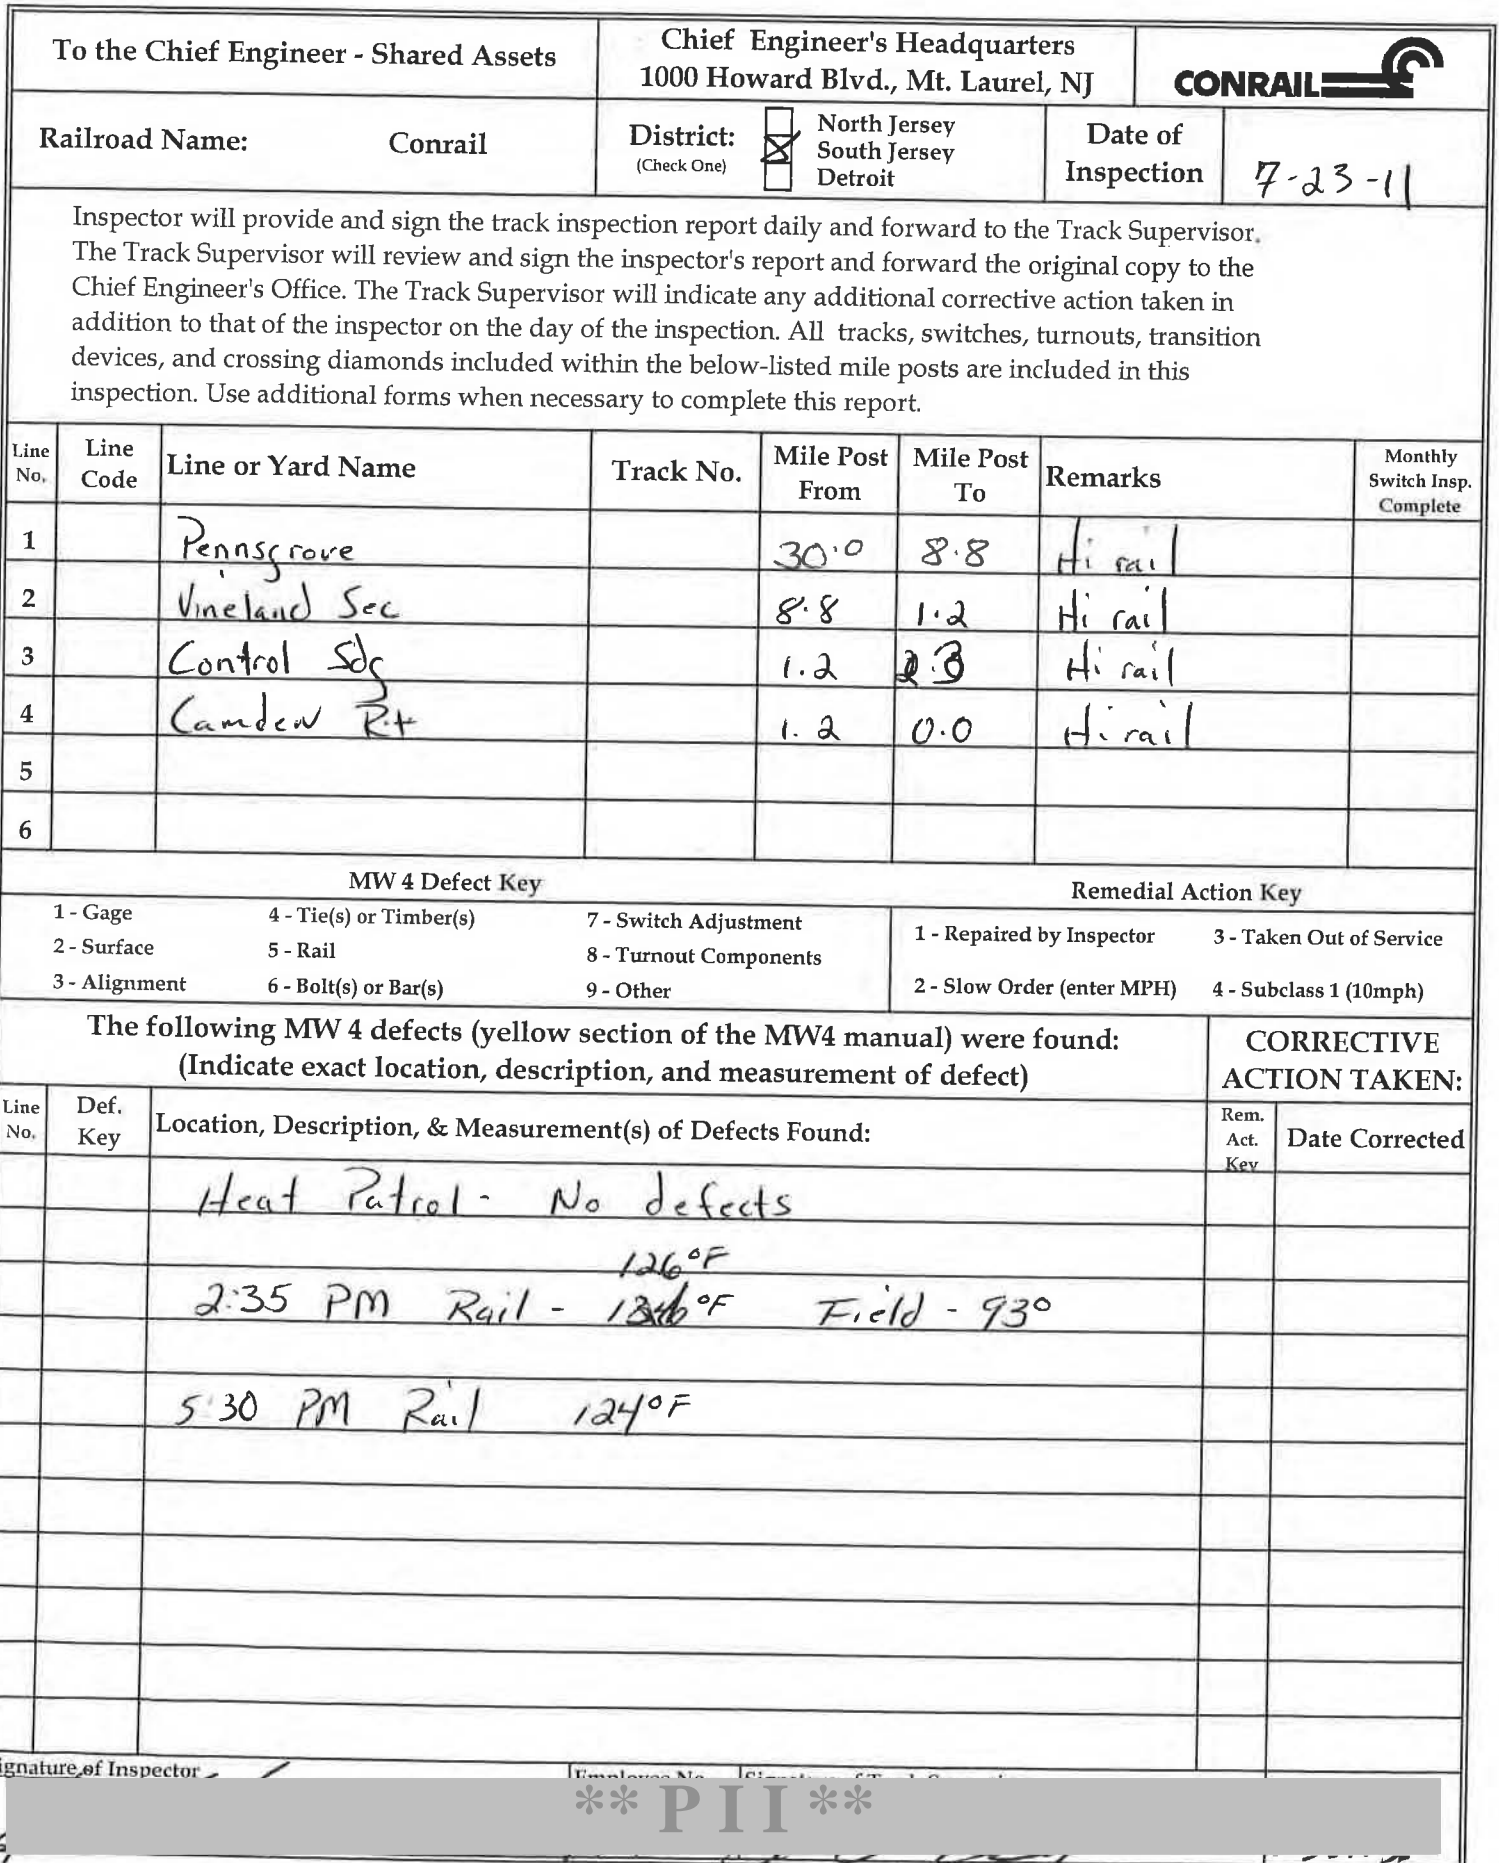 To the Chief Engineer - Shared Assets
Chief Engineer's Headquarters
1000 Howard Blvd., Mt. Laurel, NJ
CONRAIL
Railroad Name: Conrail
District:
(Check One)
North Jersey
South Jersey
Detroit
Date of
Inspection
7-23-11
Inspector will provide and sign the track inspection report daily and forward to the Track Supervisor.
The Track Supervisor will review and sign the inspector's report and forward the original copy to the
Chief Engineer's Office. The Track Supervisor will indicate any additional corrective action taken in
addition to that of the inspector on the day of the inspection. All tracks, switches, turnouts, transition
devices, and crossing diamonds included within the below-listed mile posts are included in this
inspection. Use additional forms when necessary to complete this report.
Line No. Line Code Line or Yard Name Track No. Mile Post From Mile Post To Remarks Monthly Switch Insp. Complete
1 Pennsgrove 30.0 8.8 Hi rail
2 Vineland Sec 8.8 1.2 Hi rail
3 Control Sdg 1.2 Hi rail
4 Camden R+ 1.2 0.0 Hi rail
5
6
MW 4 Defect Key Remedial Action Key
1 - Gage 4 - Tie(s) or Timber(s) 7 - Switch Adjustment 1 - Repaired by Inspector 3 - Taken Out of Service
2 - Surface 5 - Rail 8 - Turnout Components
3 - Alignment 6 - Bolt(s) or Bar(s) 9 - Other 2 - Slow Order (enter MPH) 4 - Subclass 1 (10mph)
The following MW 4 defects (yellow section of the MW4 manual) were found:
(Indicate exact location, description, and measurement of defect)
CORRECTIVE
ACTION TAKEN:
Line No. Def. Key Location, Description, & Measurement(s) of Defects Found: Rem. Act. Key Date Corrected
Heat Patrol - No defects
126°F
2:35 PM Rail - °F Field - 93°
5:30 PM Rail 124°F
ignature of Inspector
** P I I **